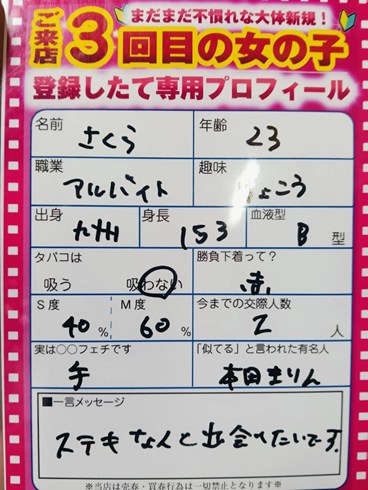 まだまだ不慣れな大体新規！
ご来店3回目の女の子
登録したて専用プロフィール
名前 さくら 年齢 23
職業 アルバイト 趣味 りょこう
出身 九州 身長 153 血液型 B 型
タバコは 勝負下着って？
吸う 吸わない 赤
S度 M度 今までの交際人数
40% 60% 2人
実は○○フェチです 「似てる」と言われた有名人
手 本田まりん
■一言メッセージ
ステキな人と出会いたいです。
※当店は売春・買春行為は一切禁止となります※